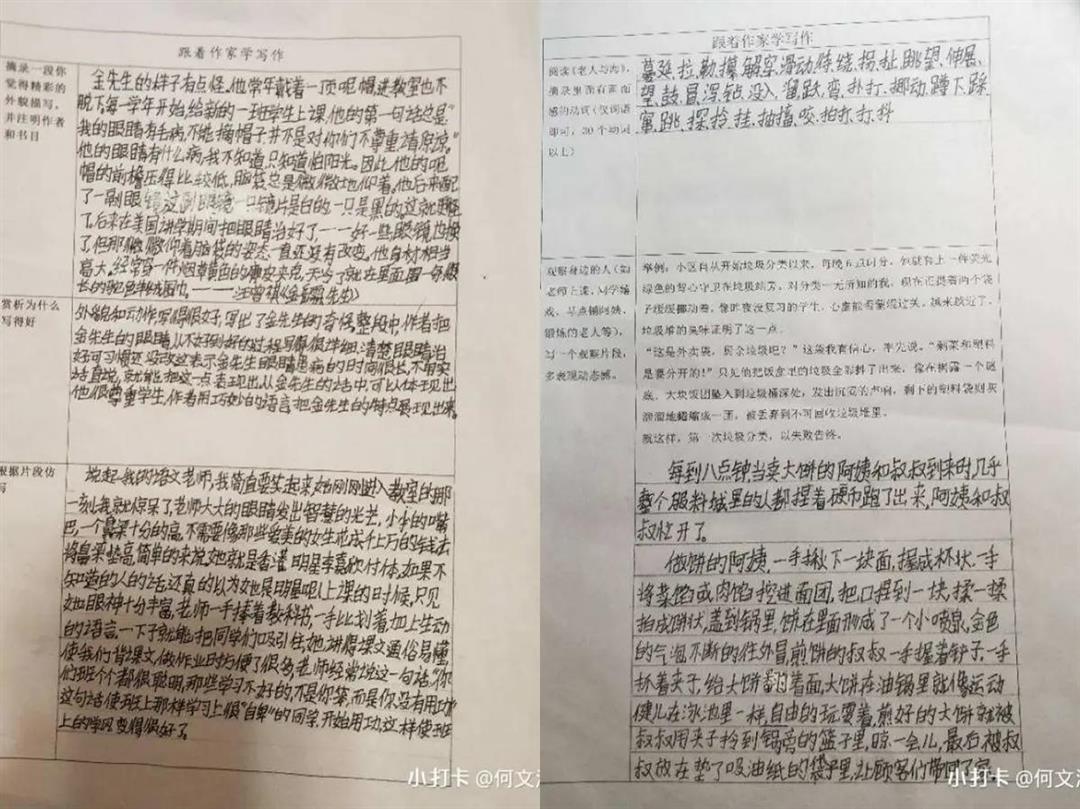 跟着作家学写作
摘录一段你
觉得精彩的
外貌描写,
并注明作者
和书目
金先生的样子有点怪。他常年戴着一顶呢帽,进教室也不
脱下。每一学年开始,给新的一班学生上课,他的第一句话总是“
我的眼睛有毛病,不能摘帽子,并不是对你们不尊重,请原谅。”
他的眼睛有什么病,我不知道,只知道怕阳光。因此他的呢
帽的前檐压得比较低,脑袋总是微微地仰着。他后来配
了一副眼镜,这副眼镜一只镜片是白的,一只是黑的。这就更怪
了。后来在美国讲学期间把眼睛治好了——好一些,眼镜也换
了,但那微微仰着脑袋的姿态一直还没有改变。他身材相当
高大,经常穿一件烟草黄色的麂皮夹克,天冷了就在里面围一条很
长的驼色的羊绒围巾。——汪曾祺《金岳霖先生》
赏析为什么
写得好
外貌和动作写得很好,写出了金先生的奇怪,整段中作者把
金先生的眼睛从不好到好的过程写的很详细,清楚眼睛治
好可习惯还没改这表示金先生眼睛患病的时间很长,不用实
话直说,就能把这一点表现出,从金先生的话中可以体现出
他很尊重学生,作者用巧妙的语言把金先生的特点展现出来。
根据片段仿
写
说起我的语文老师,我简直要笑起来,她刚刚进入教室的那
一刻,我就惊呆了,老师大大的眼睛发出智慧的光芒,小小的嘴
巴,一个鼻梁十分的高,不需要像那些爱美的女生花成千上万的钱去
将鼻梁垫高,简单的来说,她就是香港明星李嘉欣付体,如果不
知道的人的话,还真的以为她是明星呢!上课的时候,只见
她眼神十分丰富,老师一手捧着教科书,一手比划着,加上生动
的语言,一下子就能把同学们吸引住,她讲得课文通俗易懂,
使我们背课文,做作业时方便了很多,老师经常说这一句话“你
们班个个都很聪明,那些学习不好的不是你笨,而是你没有用功”
这句话使班上那样学习上很“自卑”的同学,开始用功,这样使班
上的学风变得很好了。
小打卡 @何文
跟着作家学写作
阅读《老人与海》,
摘录里面有画面
感的动词(仅词语
即可,20个动词
以上)
蔓延、拉、勒、摸、解穿、滑动、陈绕、拐、扯、眺望、伸展、
望、鼓、冒、泻、钻、没入、溜、跃、弯、扑打、挪动、蹲下、踩
窜、跳、探、拎、挂、抽搐、咬、拍打、打、抖
观察身边的人(如
老师上课,同学嬉
戏,早点铺阿姨、
锻炼的老人等),
写一个观察片段,
多表现动态感。
举例:小区自从开始垃圾分类以来,每晚6点时分,他就套上一件荧光
绿色的背心守卫在垃圾站旁。对分类一无所知的我,现在正提着两个袋
子缓缓挪动着,像昨夜没复习的学生,心虚能否蒙混过关。越来越近了,
垃圾堆的臭味证明了这一点。
“这是外卖袋,厨余垃圾吧?”这袋我有信心,率先说。“剩菜和塑料
是要分开的!”只见他把饭盒里的垃圾全都抖了出来,像在揭露一个谜
底。大块饭团坠入到垃圾桶深处,发出沉闷的声响,剩下的塑料袋则灰
溜溜地蜷缩成一团,被丢弃到不可回收垃圾堆里。
就这样,第一次垃圾分类,以失败告终。
每到八点钟,当卖大饼的阿姨和叔叔到来时,几乎
整个服料城里的人都捏着硬币跑了出来,阿姨和叔
叔忙开了。
做饼的阿姨,一手揪下一块面,握成杯状,一手
将菜馅或肉馅挖进面团,把口捏到一块,揉一揉
拍成饼状,盖到锅里,饼在里面形成了一个小喷泉,金色
的气泡不断的往外冒,煎饼的叔叔一手握着铲子,一手
抓着夹子,给大饼翻着面,大饼在油锅里就像运动
健儿在泳池里一样,自由的玩耍着,煎好的大饼就被
叔叔用夹子拎到锅旁的篮子里,晾一会儿,最后被叔
叔放在垫了吸油纸的袋子里,让顾客们带回了家。
小打卡 @何文